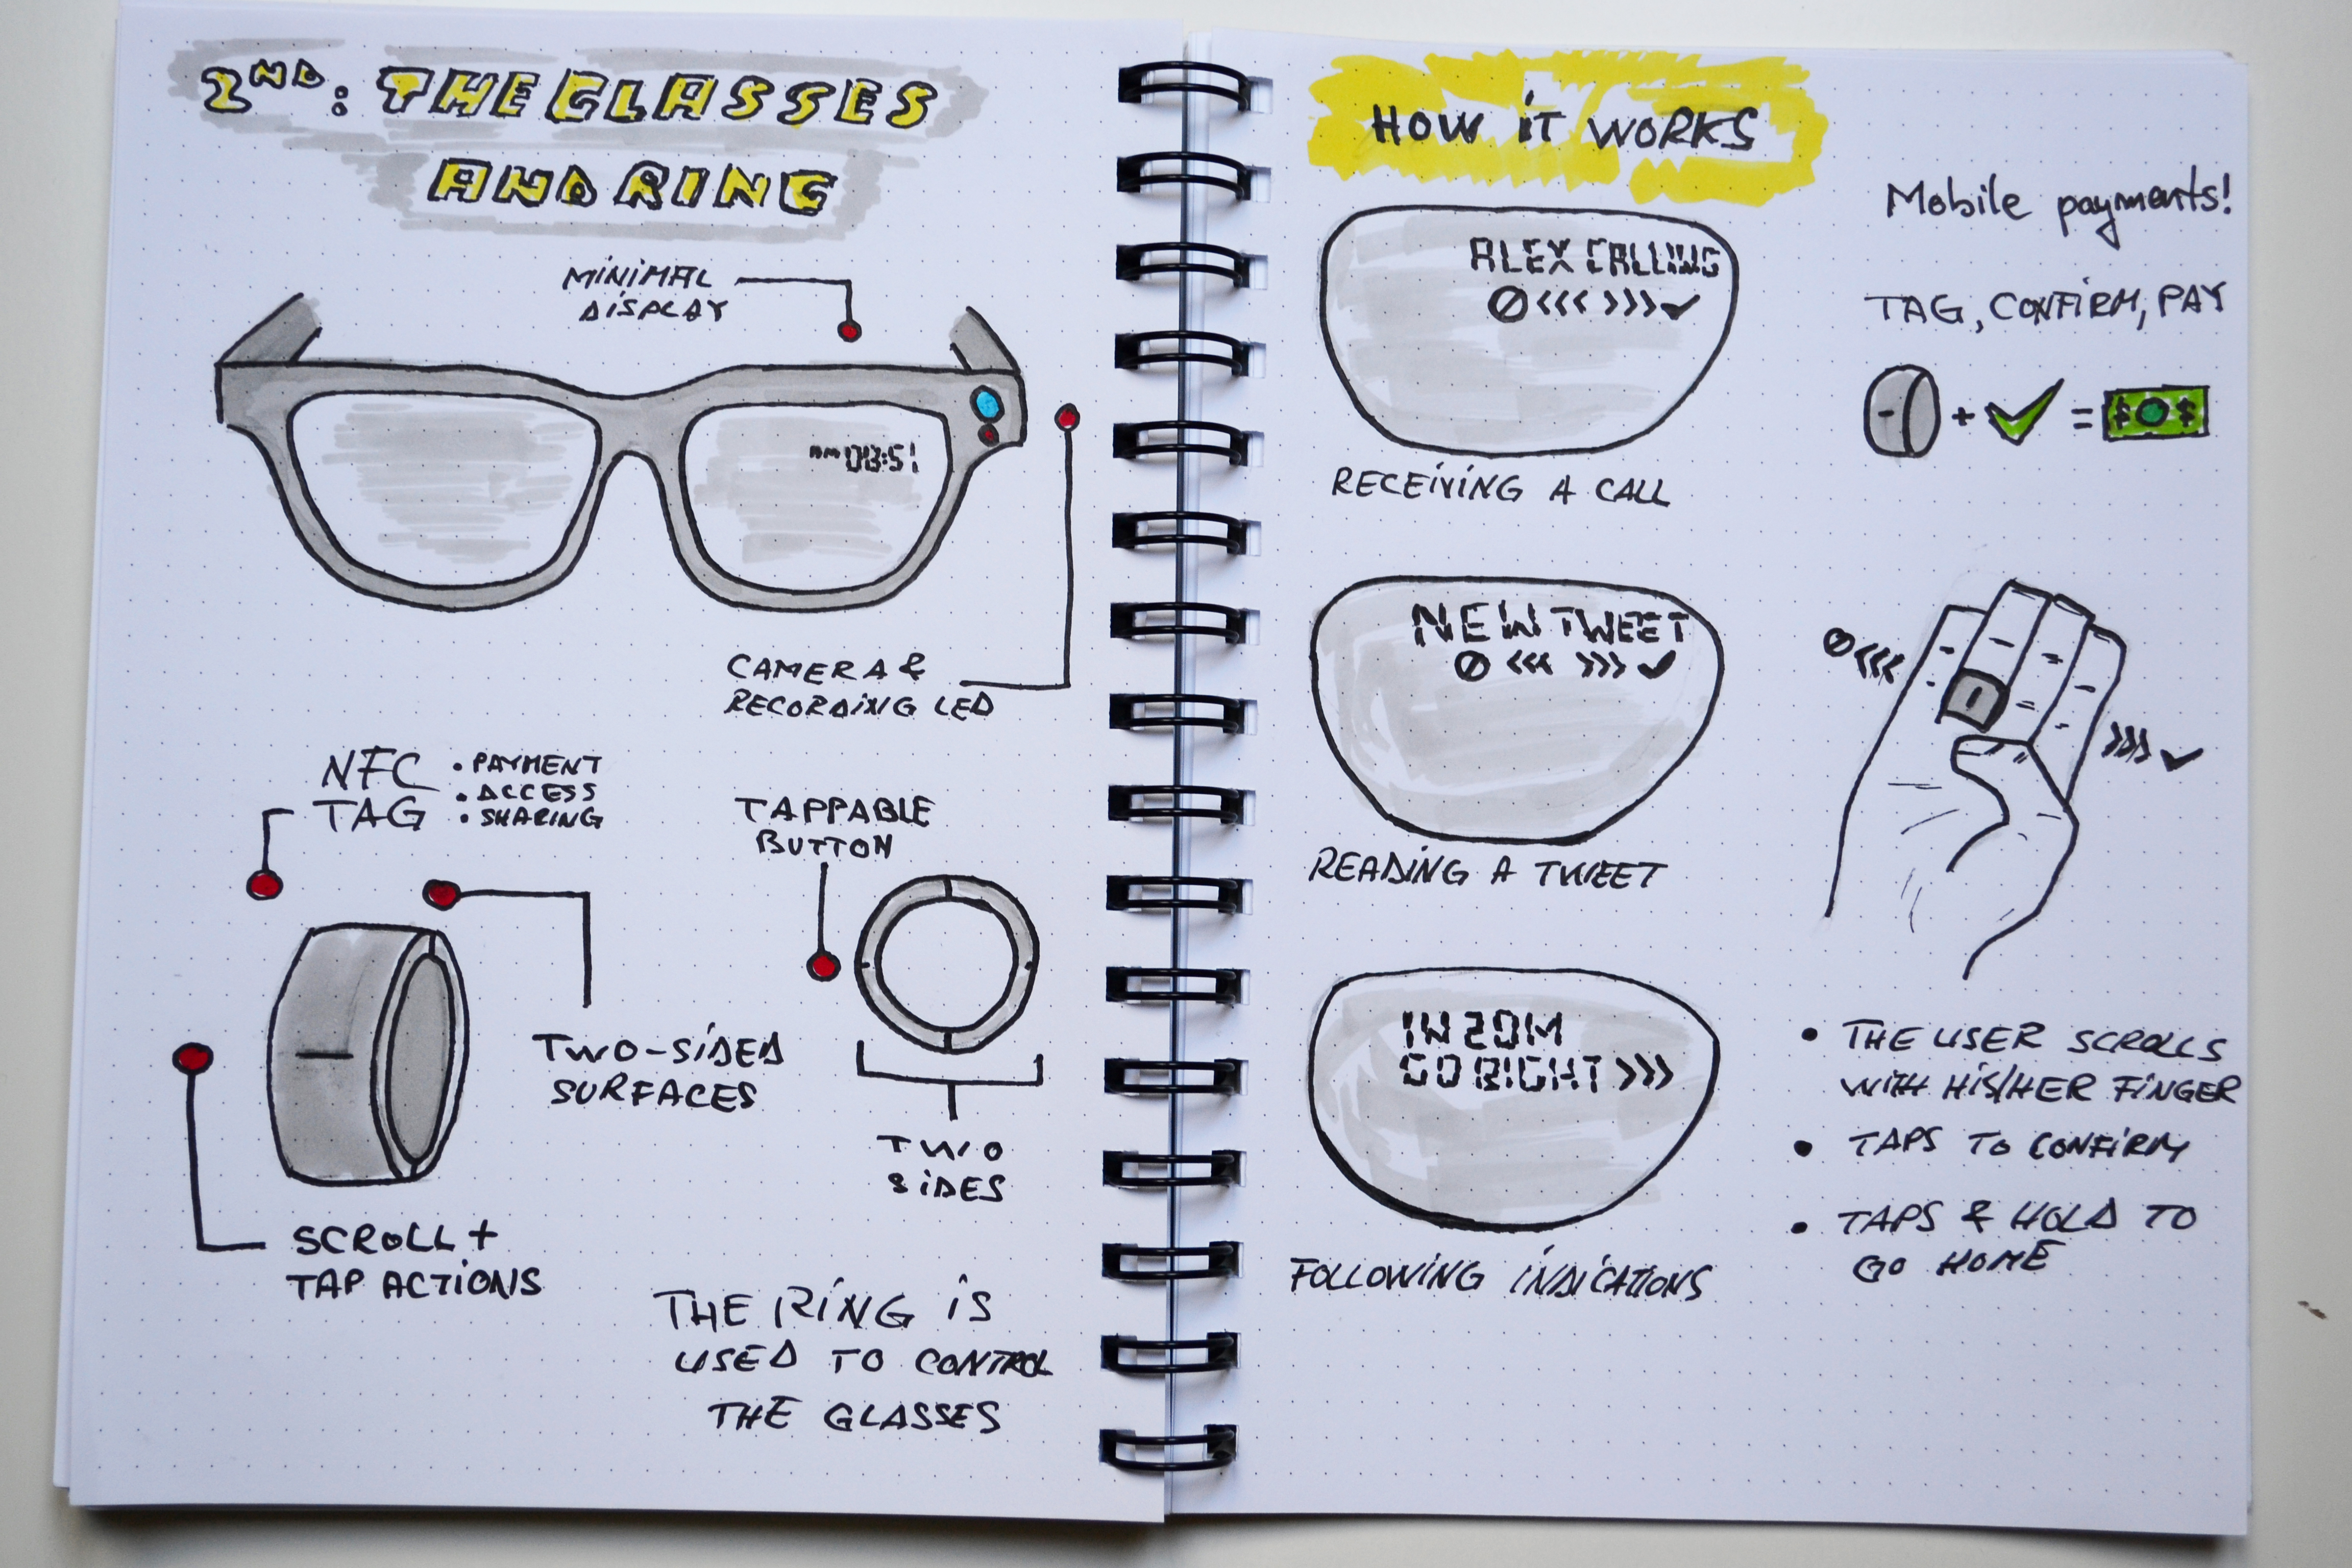 2ND: THE GLASSES
AND RING
MINIMAL
DISPLAY
AM 08:51
CAMERA &
RECORDING LED
NFC
TAG
• PAYMENT
• ACCESS
• SHARING
TAPPABLE
BUTTON
TWO-SIDED
SURFACES
TWO
SIDES
SCROLL +
TAP ACTIONS
THE RING IS
USED TO CONTROL
THE GLASSES
HOW IT WORKS
ALEX CALLING
<<< >>> ✓
RECEIVING A CALL
NEW TWEET
<<< >>> ✓
READING A TWEET
IN 20M
GO RIGHT >>>
FOLLOWING INDICATIONS
Mobile payments!
TAG, CONFIRM, PAY
+ ✓ = $ $
<<<
>>> ✓
• THE USER SCROLLS
WITH HIS/HER FINGER
• TAPS TO CONFIRM
• TAPS & HOLD TO
GO HOME